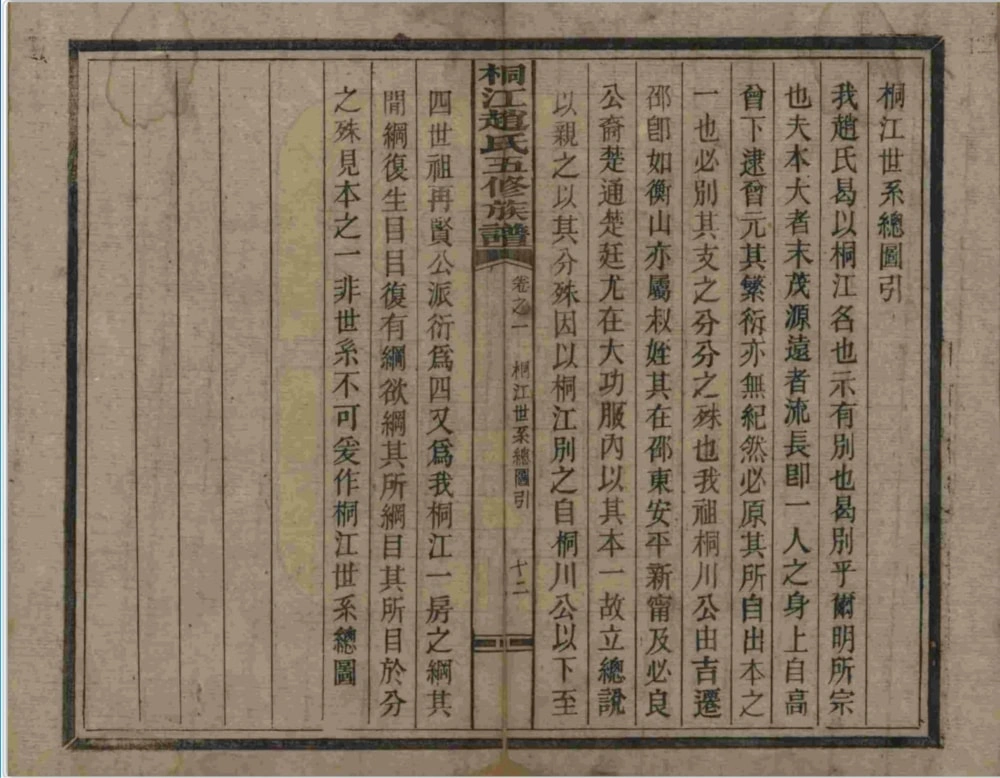 桐江世系總圖引
我趙氏曷以桐江名也示有別也曷別乎爾明所宗
也夫本大者末茂源遠者流長卽一人之身上自高
曾下逮曾元其繁衍亦無紀然必原其所自出本之
一也必別其支之分分之殊也我祖桐川公由吉遷
邵卽如衡山亦屬叔姪其在邵東安平新甯及必良
公裔楚通楚廷尤在大功服內以其本一故立總說
以親之以其分殊因以桐江別之自桐川公以下至
桐江趙氏五修族譜
卷之一 桐江世系總圖引 十二
四世祖再賢公派衍爲四又爲我桐江一房之綱其
間綱復生目目復有綱欲綱其所綱目其所目於分
之殊見本之一非世系不可爰作桐江世系總圖